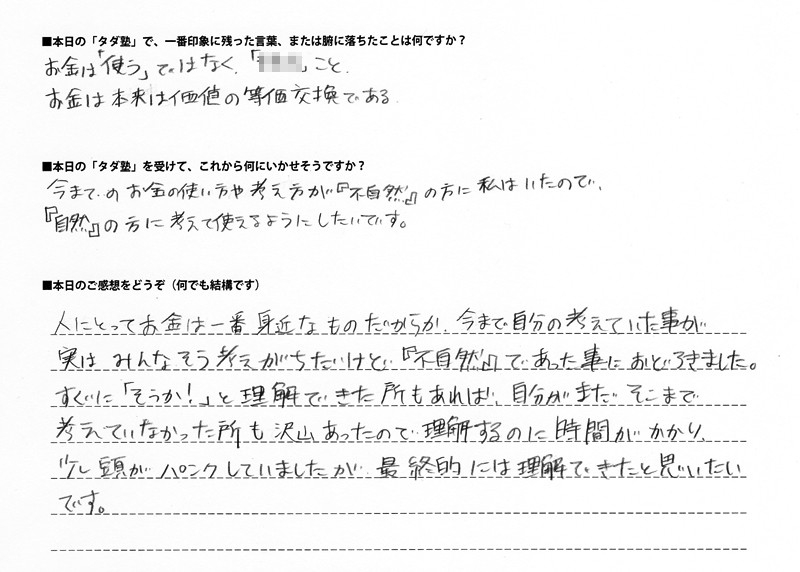 ■本日の「タダ塾」で、一番印象に残った言葉、または腑に落ちたことは何ですか？
お金は「使う」ではなく、「」こと、
お金は本来は価値の等価交換である
■本日の「タダ塾」を受けて、これから何にいかせそうですか？
今までのお金の使い方や考え方が『不自然』の方に私はいたので、
『自然』の方に考えて使えるようにしたいです。
■本日のご感想をどうぞ（何でも結構です）
人にとってお金は一番身近なものだからか、今まで自分の考えていた事が
実はみんなそう考えがちだいけど、『不自然』であった事におどろきました。
すぐに「そうか！」と理解できた所もあれば、自分がまだそこまで
考えていなかった所も沢山あったので理解するのに時間がかかり、
少し頭がパンクしていましたが、最終的には理解できたと思いたい
です。